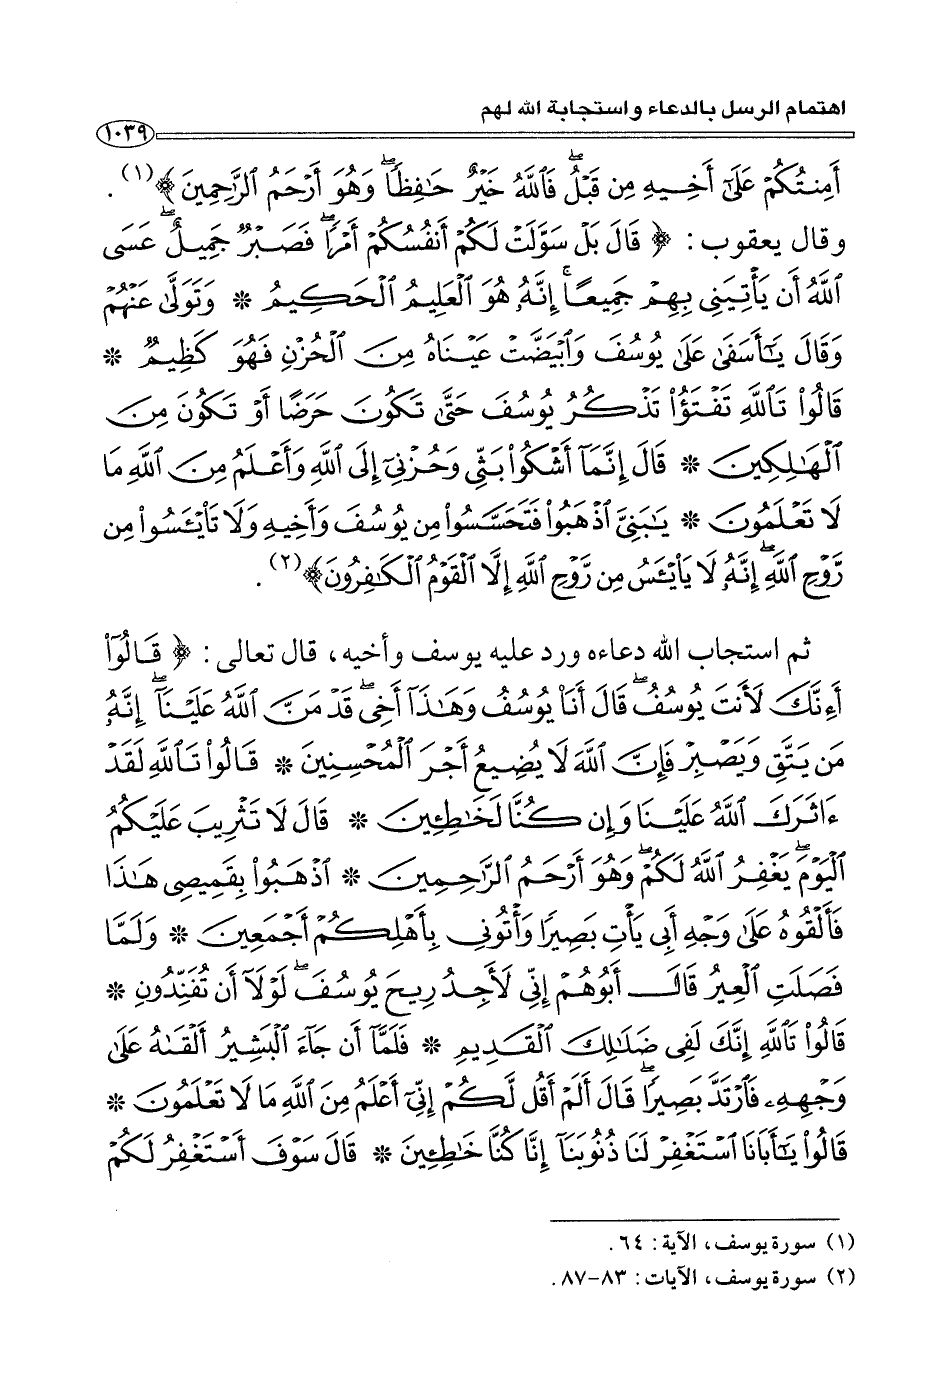 اهتمام الرسل بالدعاء واستجابة الله لهم
١٠٣٩
أَمِنتُكُمْ عَلَىٰٓ أَخِيهِ مِن قَبْلُ ۖ فَٱللَّهُ خَيْرٌ حَٰفِظًا ۖ وَهُوَ أَرْحَمُ ٱلرَّٰحِمِينَ﴾(١) .
وقال يعقوب : ﴿ قَالَ بَلْ سَوَّلَتْ لَكُمْ أَنفُسُكُمْ أَمْرًا ۖ فَصَبْرٌ جَمِيلٌ ۖ عَسَى
ٱللَّهُ أَن يَأْتِيَنِى بِهِمْ جَمِيعًا ۚ إِنَّهُۥ هُوَ ٱلْعَلِيمُ ٱلْحَكِيمُ * وَتَوَلَّىٰ عَنْهُمْ
وَقَالَ يَٰٓأَسَفَىٰ عَلَىٰ يُوسُفَ وَٱبْيَضَّتْ عَيْنَاهُ مِنَ ٱلْحُزْنِ فَهُوَ كَظِيمٌ *
قَالُوا۟ تَٱللَّهِ تَفْتَؤُا۟ تَذْكُرُ يُوسُفَ حَتَّىٰ تَكُونَ حَرَضًا أَوْ تَكُونَ مِنَ
ٱلْهَٰلِكِينَ * قَالَ إِنَّمَآ أَشْكُوا۟ بَثِّى وَحُزْنِىٓ إِلَى ٱللَّهِ وَأَعْلَمُ مِنَ ٱللَّهِ مَا
لَا تَعْلَمُونَ * يَٰبَنِىَّ ٱذْهَبُوا۟ فَتَحَسَّسُوا۟ مِن يُوسُفَ وَأَخِيهِ وَلَا تَا۟يْـَٔسُوا۟ مِن
رَّوْحِ ٱللَّهِ ۖ إِنَّهُۥ لَا يَا۟يْـَٔسُ مِن رَّوْحِ ٱللَّهِ إِلَّا ٱلْقَوْمُ ٱلْكَٰفِرُونَ﴾(٢) .
ثم استجاب الله دعاءه ورد عليه يوسف وأخيه، قال تعالى : ﴿ قَالُوٓا۟
أَءِنَّكَ لَأَنتَ يُوسُفُ ۖ قَالَ أَنَا۠ يُوسُفُ وَهَٰذَآ أَخِى ۖ قَدْ مَنَّ ٱللَّهُ عَلَيْنَآ ۖ إِنَّهُۥ
مَن يَتَّقِ وَيَصْبِرْ فَإِنَّ ٱللَّهَ لَا يُضِيعُ أَجْرَ ٱلْمُحْسِنِينَ * قَالُوا۟ تَٱللَّهِ لَقَدْ
ءَاثَرَكَ ٱللَّهُ عَلَيْنَا وَإِن كُنَّا لَخَٰطِـِٔينَ * قَالَ لَا تَثْرِيبَ عَلَيْكُمُ
ٱلْيَوْمَ ۖ يَغْفِرُ ٱللَّهُ لَكُمْ ۖ وَهُوَ أَرْحَمُ ٱلرَّٰحِمِينَ * ٱذْهَبُوا۟ بِقَمِيصِى هَٰذَا
فَأَلْقُوهُ عَلَىٰ وَجْهِ أَبِى يَأْتِ بَصِيرًا وَأْتُونِى بِأَهْلِكُمْ أَجْمَعِينَ * وَلَمَّا
فَصَلَتِ ٱلْعِيرُ قَالَ أَبُوهُمْ إِنِّى لَأَجِدُ رِيحَ يُوسُفَ ۖ لَوْلَآ أَن تُفَنِّدُونِ *
قَالُوا۟ تَٱللَّهِ إِنَّكَ لَفِى ضَلَٰلِكَ ٱلْقَدِيمِ * فَلَمَّآ أَن جَآءَ ٱلْبَشِيرُ أَلْقَىٰهُ عَلَىٰ
وَجْهِهِۦ فَٱرْتَدَّ بَصِيرًا ۖ قَالَ أَلَمْ أَقُل لَّكُمْ إِنِّىٓ أَعْلَمُ مِنَ ٱللَّهِ مَا لَا تَعْلَمُونَ *
قَالُوا۟ يَٰٓأَبَانَا ٱسْتَغْفِرْ لَنَا ذُنُوبَنَآ إِنَّا كُنَّا خَٰطِـِٔينَ * قَالَ سَوْفَ أَسْتَغْفِرُ لَكُمْ
(١) سورة يوسف، الآية : ٦٤ .
(٢) سورة يوسف، الآيات : ٨٣-٨٧ .